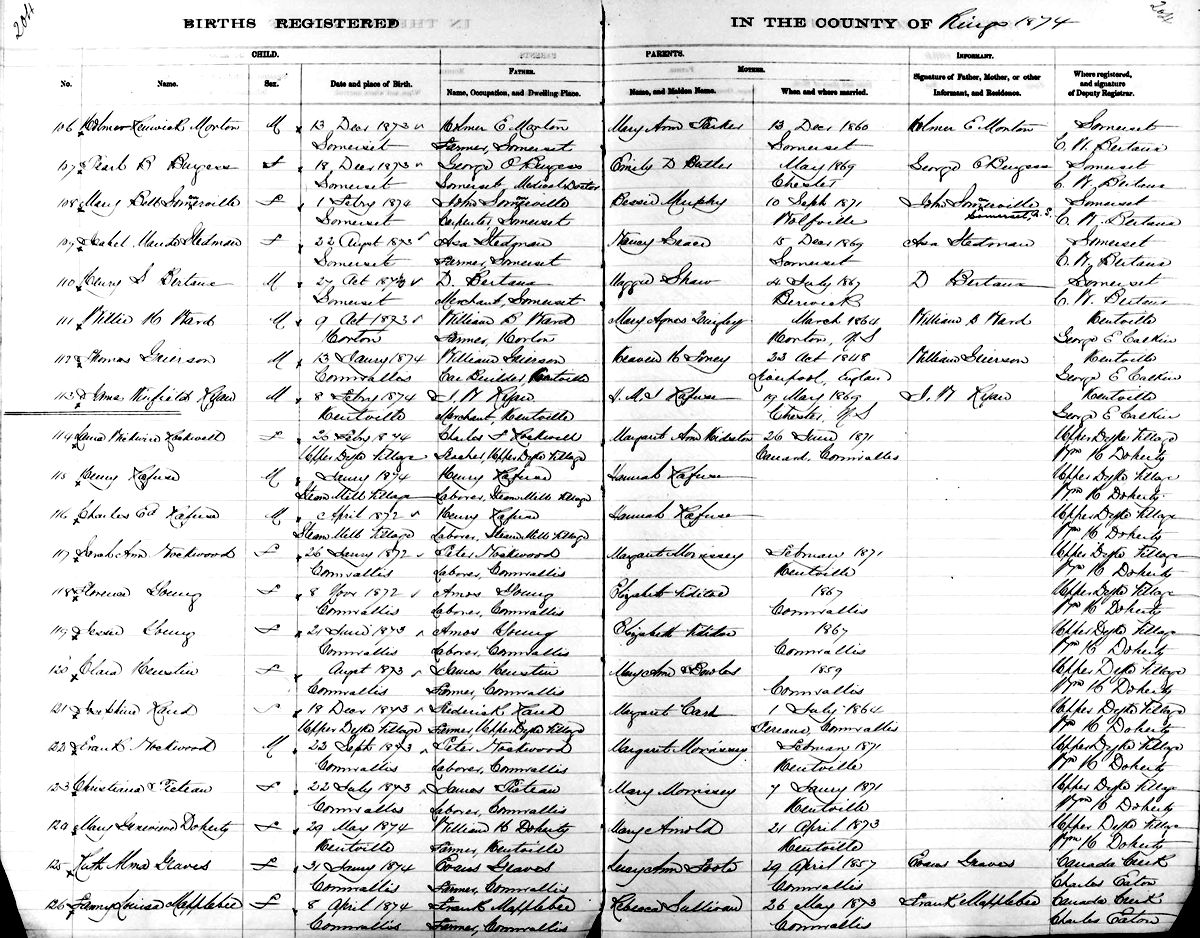 204
BIRTHS REGISTERED
IN THE COUNTY OF Kings 1874
204
CHILD.
PARENTS.
INFORMANT.
FATHER.
MOTHER.
No.
Name.
Sex.
Date and place of Birth.
Name, Occupation, and Dwelling-Place.
Name, and Maiden Name.
When and where married.
Signature of Father, Mother, or other
Informant, and Residence.
Where registered,
and signature
of Deputy Registrar.
106 Morton M 13 Decr 1873 E Morton Mary Ann Parker 13 Decr 1860 E Morton Somerset
Somerset Farmer, Somerset Somerset C. W. Bertaux
107 Pearl B Burgess F 18 Decr 1873 George O Burgess Emily D Butler May 1869 George Burgess Somerset
Somerset Somerset, Medical Doctor Chester C. W. Bertaux
108 Mary Bell Somerville F 1 Febry 1874 John Somerville Bessie Murphy 10 Sept 1871 John Somerville Somerset
Somerset Carpenter, Somerset Wolfville Somerset N.S. C. W. Bertaux
109 Isabel Maude Stedman F 22 Augst 1873 Asa Stedman Nancy 15 Decr 1869 Asa Stedman Somerset
Somerset Farmer, Somerset Somerset C. W. Bertaux
110 Henry S Bertaux M 27 Oct 1873 D. Bertaux Maggie Shaw 4 July 1867 D Bertaux Somerset
Somerset Merchant, Somerset Berwick C. W. Bertaux
111 Willie H Ward M 9 Oct 1873 William B Ward Mary Agnes Quigley March 1864 William B Ward Kentville
Horton Farmer, Horton Horton, N.S George E Calkin
112 Thomas Grierson M 13 Janry 1874 William Grierson 23 Oct 1848 William Grierson Kentville
Cornwallis Car Builder, Kentville Liverpool, England George E Calkin
113 M 8 Febry 1874 19 May 1869 Kentville
Kentville Merchant, Kentville Chester, N.S George E Calkin
114 Rockwell F 20 Febry 1874 Charles Rockwell Margaret Ann 26 June 1871 Upper Dyke Village
Upper Dyke Village Teacher, Upper Dyke Village Canard, Cornwallis Wm H Doherty
115 Henry Lafuse M Janry 1874 Henry Lafuse Hannah Lafuse Upper Dyke Village
Steam Mill Village Laborer, Steam Mill Village Wm H Doherty
116 Charles Ed Lafuse M April 1872 Henry Lafuse Hannah Lafuse Upper Dyke Village
Steam Mill Village Laborer, Steam Mill Village Wm H Doherty
117 Sarah Ann Rockwood F 26 Janry 1872 Peter Rockwood Margaret Morrissey 1871 Upper Dyke Village
Cornwallis Laborer, Cornwallis Kentville Wm H Doherty
118 Florence Young F 8 Novr 1872 Amos Young Elizabeth 1867 Upper Dyke Village
Cornwallis Laborer, Cornwallis Cornwallis Wm H Doherty
119 Jessie Young F 21 June 1873 Amos Young Elizabeth 1867 Upper Dyke Village
Cornwallis Laborer, Cornwallis Cornwallis Wm H Doherty
120 Clara F Augst 1873 James Mary Ann 1859 Upper Dyke Village
Cornwallis Farmer, Cornwallis Cornwallis Wm H Doherty
121 F 18 Decr 1873 Margaret Card 1 July 1864 Upper Dyke Village
Upper Dyke Village Farmer, Upper Dyke Village Cornwallis Wm H Doherty
122 Frank Rockwood M 23 Sept 1873 Peter Rockwood Margaret Morrissey 1871 Upper Dyke Village
Cornwallis Laborer, Cornwallis Kentville Wm H Doherty
123 Christiana F 22 July 1873 James Mary Morrissey 7 Janry 1871 Upper Dyke Village
Cornwallis Laborer, Cornwallis Kentville Wm H Doherty
124 Mary Doherty F 29 May 1874 William H Doherty Mary Arnold 21 April 1873 Upper Dyke Village
Kentville Farmer, Kentville Kentville Wm H Doherty
125 Ruth Alma Graves F 31 Janry 1874 Evans Graves Mary Ann Foote 29 April 1857 Evans Graves Canada Creek
Cornwallis Farmer, Cornwallis Cornwallis Charles Eaton
126 Fanny Louisa Mapplebee F 8 April 1874 Frank Mapplebee Rebecca Sullivan 26 May 1873 Frank Mapplebee Canada Creek
Cornwallis Farmer, Cornwallis Cornwallis Charles Eaton